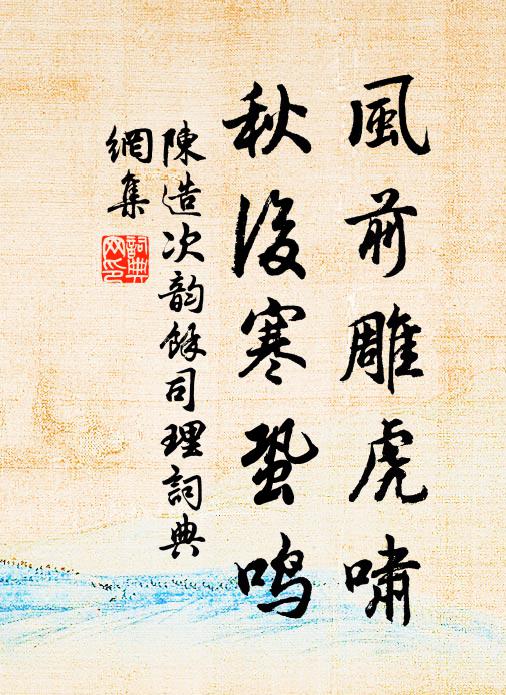 風前雕虎嘯
秋後寒蛩鳴
陳造次韵餘司理詞典
網集
詞典
网印